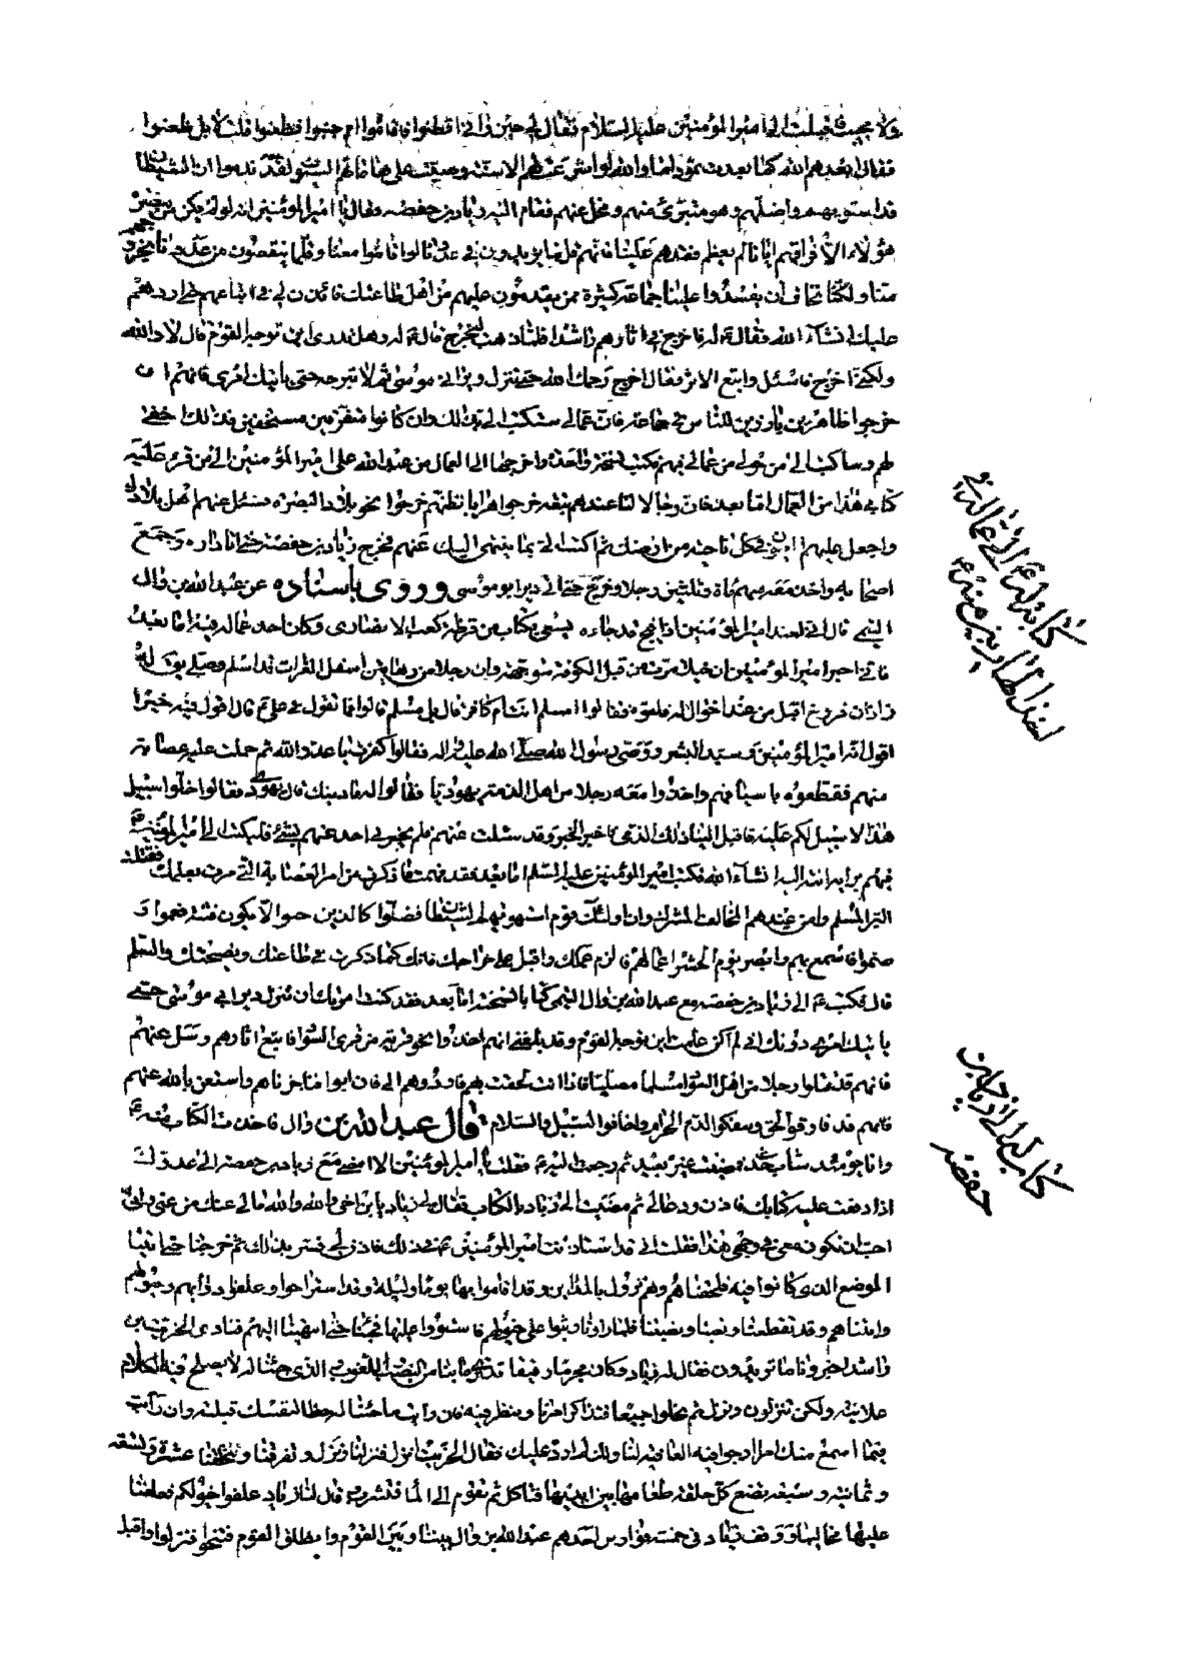 ولا مجيب فاقبلت الى امير المؤمنين عليه السلام فقال لي حين رآني اقطنوا فاقاموا ام جبنوا فظعنوا قلت لا بل ظعنوا
فقال ابعدهم الله كما بعدت ثمود اما والله لو اشرعت لهم الاسنة وصبت على هاماتهم السيوف لقد ندموا ان الشيطان
قد استهويهم واضلهم وهو متبرئ منهم ومخل عنهم فقام اليه زياد بن خصفه وقال يا امير المؤمنين انه لو لم يكن من مضرة
هؤلاء الا فراقهم ايانا لم يعظم فقدهم علينا فانهم قلما يزيدون في عددنا لو اقاموا معنا وقلما ينقصون من عددنا بخروجهم
منا ولكنا نخاف ان يفسدوا علينا جماعة كثيرة ممن يقدمون عليهم من اهل طاعتك فائذن لي في اتباعهم حتى اردهم
عليك انشاء الله فقال له فاخرج في اثارهم راشدا فلما ذهب ليخرج قال له وهل تدري اين توجه القوم قال لا والله
ولكني اخرج فاسئل واتبع الاثر فقال اخرج رحمك الله حتى تنزل دير ابي موسى ثم لا تبرحه حتى ياتيك امري فانهم ان
خرجوا ظاهرين بارزين للناس في جماعة فان عمالي ستكتب الي بذلك وان كانوا متفرقين مستخفين فذلك اخفى
لهم وساكتب الى من حولي من عمالي فيهم فكتب نسخة واحدة واخرجها الى العمال من عبد الله علي امير المؤمنين الى من قرئ عليه
كتابي هذا من العمال اما بعد فان رجالا لنا عندهم تبعه خرجوا هرابا نظنهم خرجوا نحو بلاد البصره فسئل عنهم اهل بلادك
واجعل عليهم العيون في كل ناحية من ارضك ثم اكتب الي بما ينتهي اليك عنهم فخرج زياد بن خصفة حتى اتا داره وجمع
اصحابه واخذ معه منهم مأة وثلثين رجلا وخرج حتى اتى دير ابو موسى وروى باسناده عن عبد الله بن وال
التيمي قال اني لعند امير المؤمنين اذا فيج قد جاءه يسعى بكتاب من قرظة بن كعب الانصاري وكان احد عماله فيه اما بعد
فاني اخبر امير المؤمنين ان خيلا مرت من قبل الكوفة متوجهة وان رجلا من دهاقين اسفل الفرات قد اسلم وصلى يقال له
زادان فروخ اقبل من عند اخوال له فلقوه فقالوا امسلم انت ام كافر قال بل مسلم قالوا فما تقول في علي قال اقول فيه خيرا
اقول انه امير المؤمنين وسيد البشر ووصي رسول الله صلى الله عليه واله فقالوا كفرت يا عدو الله ثم حملت عليه عصابة
منهم فقطعوه باسيافهم واخذوا معه رجلا من اهل الذمة يهوديا فقالوا له ما دينك قال يهودي فقالوا خلوا سبيل
هذا لا سبيل لكم عليه فاقبل الينا ذلك الذمي فاخبرنا الخبر وقد سئلت عنهم فلم يخبرني احد عنهم بشئ فليكتب الي امير المؤمنين
فيهم برايه انته اليه انشاء الله فكتب امير المؤمنين عليه السلم اما بعد فقد فهمت ما ذكرت من امر العصابة التي مرت بعملك فقتلت
البر المسلم وامن عندهم المخالف المشرك وان اولئك قوم استهويهم الشيطان فضلوا كالذين حسبوا الا يكون فتنة فعموا و
صموا فاسمع بهم وابصر يوم تحشر اعمالهم فالزم عملك واقبل على خراجك فانك كما ذكرت في طاعتك ونصيحتك والسلم
قال فكتب ع الى زياد بن خصفه مع عبد الله بن وال التيمي كتابا نسخته اما بعد فقد كنت امرتك ان تنزل دير ابي موسى حتى
ياتيك امري وذلك اني لم اكن علمت اين توجه القوم وقد بلغني انهم اخذوا نحو قرية من قرى السواد فاتبع اثارهم وسل عنهم
فانهم قد قتلوا رجلا من اهل السواد مسلما مصليا فاذا انت لحقت بهم فارددهم الي فان ابوا فناجزهم واستعن بالله عليهم
فانهم قد فارقوا الحق وسفكوا الدم الحرام واخافوا السبيل والسلام قال عبد الله بن وال فاخذت الكتاب منه ع
وانا يومئذ شاب حدث فمضيت غير بعيد ثم رجعت اليه فقلت يا امير المؤمنين الا امضي مع زياد بن خصفه الى عدوك
اذا دفعت عليه كتابك فاذن ودعا لي ثم مضيت الى زياد بالكتاب فقال لي زياد يا ابن اخي والله ما لي عنك من غنى واني
احب ان تكون معي في وجهي هذا فقلت اني قد استاذنت امير المؤمنين في ذلك فاذن لي فسر بذلك ثم خرجنا حتى اتينا
الموضع الذي كانوا فيه فلحقناهم وهم نزول بالمداين وقد اقاموا بها يوما وليلة وقد استراحوا وعلفوا دوابهم وخيولهم
واتيناهم وقد تقطعنا وتعبنا ونصبنا فلما راونا وثبوا على خيولهم فاستووا عليها فجئنا حتى انتهينا اليهم فنادى الخريت بن
راشد اخبرونا ما تريدون فقال له زياد وكان مجربا رفيقا قد ترى ما بنا من النصب واللغوب والذي جئنا له لا يصلح فيه الكلام
علانية ولكن تنزلون وننزل ثم نخلوا جميعا فنتذاكر امرنا وننظر فيه فان رايت ما جئنا له حظا لنفسك قبلته وان رايت
فيما اسمع منك امرا ارجوا فيه العافية لنا ولك لم اردده عليك فقال الخريت انزل فنزلنا ونزل وتفرقنا وتحلقنا عشرة وتسعة
وثمانية وسبعة نضع كل حلقة طعامها بين ايديها فتاكل ثم تقوم الى الماء فتشرب قال لنا زياد علفوا خيولكم فعلقنا
عليها مخاليها ووقف زياد في خمسة فوارس احدهم عبد الله بن وال بيننا وبين القوم وانطلق القوم فتنحوا فنزلوا واقبل
كتابته ع الى عماله في
اخذ الاخبار
كتابه ع الى زياد بن
خصفة